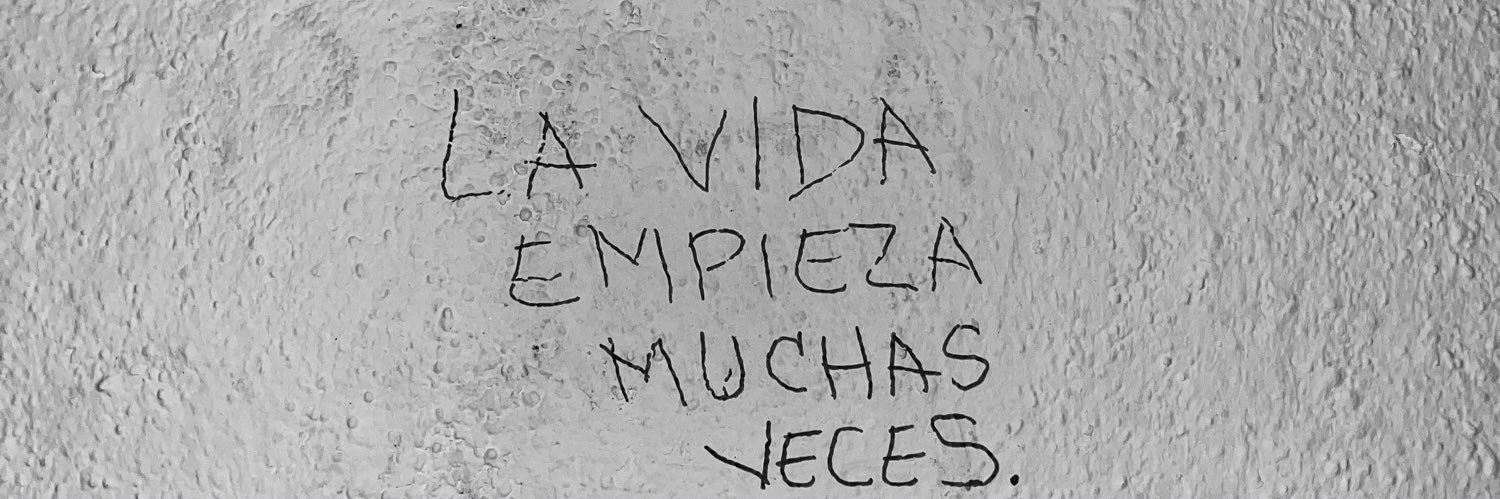 LA VIDA
EMPIEZA
MUCHAS
VECES.